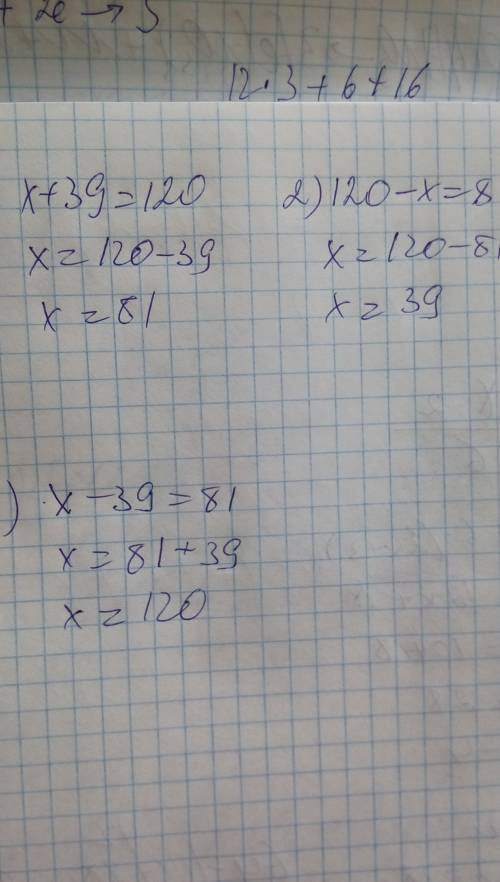 + 2e → S
12·3+6+16
x+39=120
x=120-39
x=81
2) 120-x=8
x=120-81
x=39
) x-39=81
x=81+39
x=120